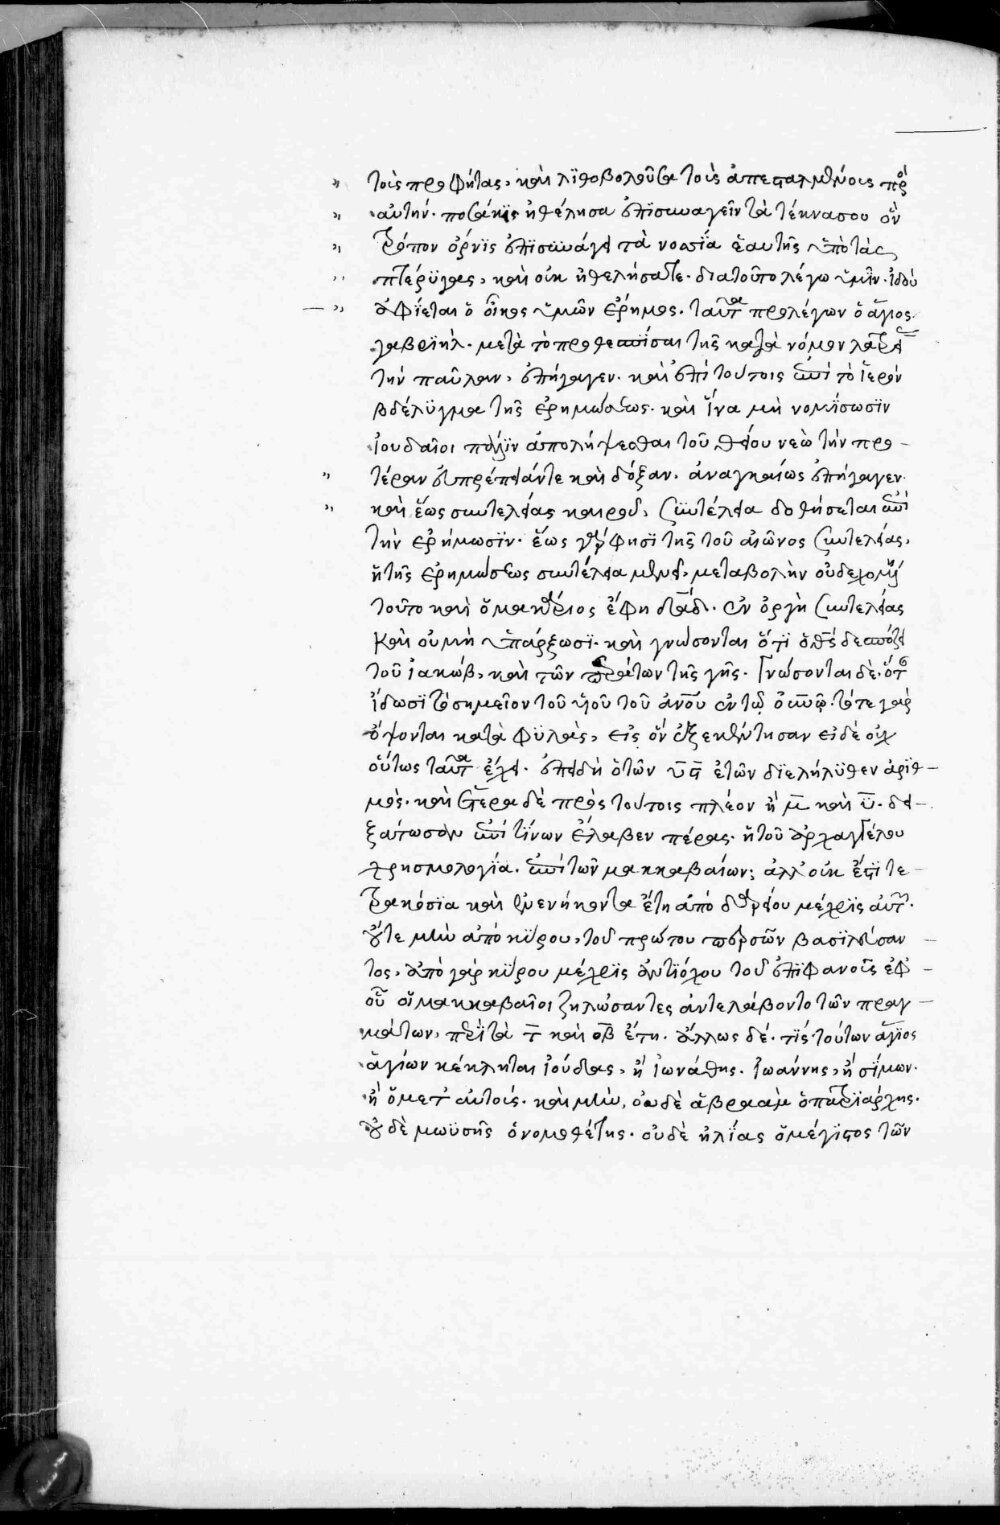 τοὺς προφήτας, καὶ λιθοβολοῦσα τοὺς ἀπεσταλμένους πρὸς
αὐτήν· ποσάκις ἠθέλησα ἐπισυναγεῖν τὰ τέκνα σου ὃν
τρόπον ὄρνις ἐπισυνάγει τὰ νοσσία ἑαυτῆς ὑπὸ τὰς
πτέρυγας, καὶ οὐκ ἠθελήσατε· διατοῦτο λέγω ὑμῖν· ἰδοὺ
ἀφίεται ὁ οἶκος ὑμῶν ἔρημος. ταῦτα προλέγων ὁ ἅγιος
γαβριήλ· μετὰ τὸ προθεσπίσαι τῆς κατὰ νόμον λατρείας
τὴν παῦλαν, ἐπήγαγεν· καὶ ἐπὶ τούτοις ἐπὶ τὸ ἱερὸν
βδέλυγμα τῆς ἐρημώσεως. καὶ ἵνα μὴ νομίσωσιν
ἰουδαῖοι πάλιν ἀπολήψεσθαι τοῦ θείου νεὼ τὴν προ-
τέραν εὐπρέπειάν τε καὶ δόξαν. ἀναγκαίως ἐπήγαγεν
καὶ ἕως συντελείας καιροῦ, συντέλεια δοθήσεται ἐπὶ
τὴν ἐρήμωσιν. ἕως γὰρ φησὶ τῆς τοῦ αἰῶνος συντελείας,
ἡ τῆς ἐρημώσεως συντέλεια μένει, μεταβολὴν οὐ δεχομένη
τοῦτο καὶ ὁ μακάριος ἔφη δαδ· ἐν ὀργῇ συντελείας
καὶ οὐ μὴ ὑπάρξωσι· καὶ γνώσονται ὅτι ὁ θς δεσπόζει
τοῦ ἰακώβ, καὶ τῶν περάτων τῆς γῆς. γνώσονται δὲ· ὅταν
ἴδωσι τὸ σημεῖον τοῦ υἱοῦ τοῦ ανου ἐν τῷ ουνῷ. τότε γὰρ
ὄψονται κατὰ φυλὰς, εἰς ὃν ἐξεκέντησαν εἰ δὲ οὐχ
οὕτως ταῦτα ἔχει. ἐπειδὴ ὁ τῶν υϟ ἐτῶν διελήλυθεν ἀριθ-
μὸς. καὶ ἕτερα δὲ πρὸς τούτοις πλέον ἢ μ καὶ υ. δει-
ξάτωσαν ἐπὶ τίνων ἔλαβεν πέρας· ἡ τοῦ ἀρχαγγέλου
χρησμολογία. ἐπὶ τῶν μακκαβαίων; ἀλλ οὐκ ἔστι τε-
τρακόσια καὶ ἐνενήκοντα ἔτη ἀπὸ δαρείου μέχρις αὐτῶν.
οὔτε μὴν ἀπὸ κύρου, τοῦ πρώτου περσῶν βασιλεύσαν-
τος, ἀπὸ γὰρ κύρου μέχρις ἀντιόχου τοῦ ἐπιφανοῦς ἐφ-
οὗ οἱ μακκαβαῖοι ζηλώσαντες ἀντελάβοντο τῶν πραγ-
μάτων, περὶ τὰ τ καὶ οβ ἔτη. ἄλλως δέ· τίς τούτων ἅγιος
ἁγίων κέκληται ἰούδας, ἢ ἰωνάθης. ἰωάννης, ἢ σίμων.
ἢ ὁ μετ αὐτούς. καὶ μὴν, οὐδὲ ἀβραὰμ ὁ πατριάρχης.
οὐδὲ μωϋσῆς ὁ νομοθέτης. οὐδὲ ἠλίας ὁ μέγιστος τῶν